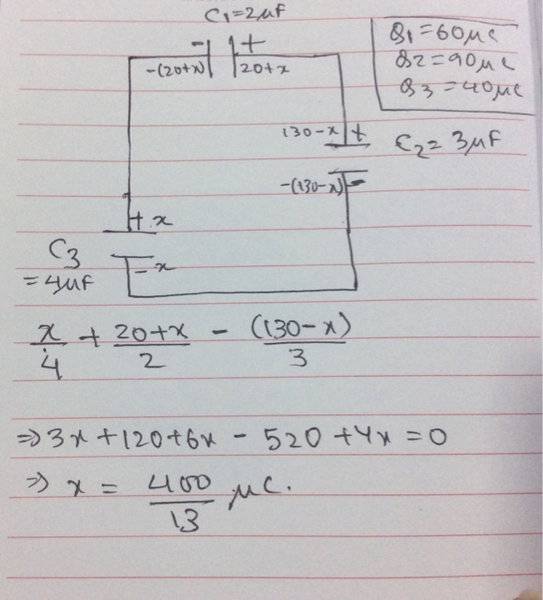 C1=2μF
Q1=60μC
Q2=90μC
Q3=40μC
- +
-(20+x) 20+x
130-x +
C2=3μF
-(130-x) -
+ x
C3
=4μF
- x
x/4 + (20+x)/2 - (130-x)/3
⇒ 3x+120+6x - 520 +4x = 0
⇒ x = 400/13 μC.